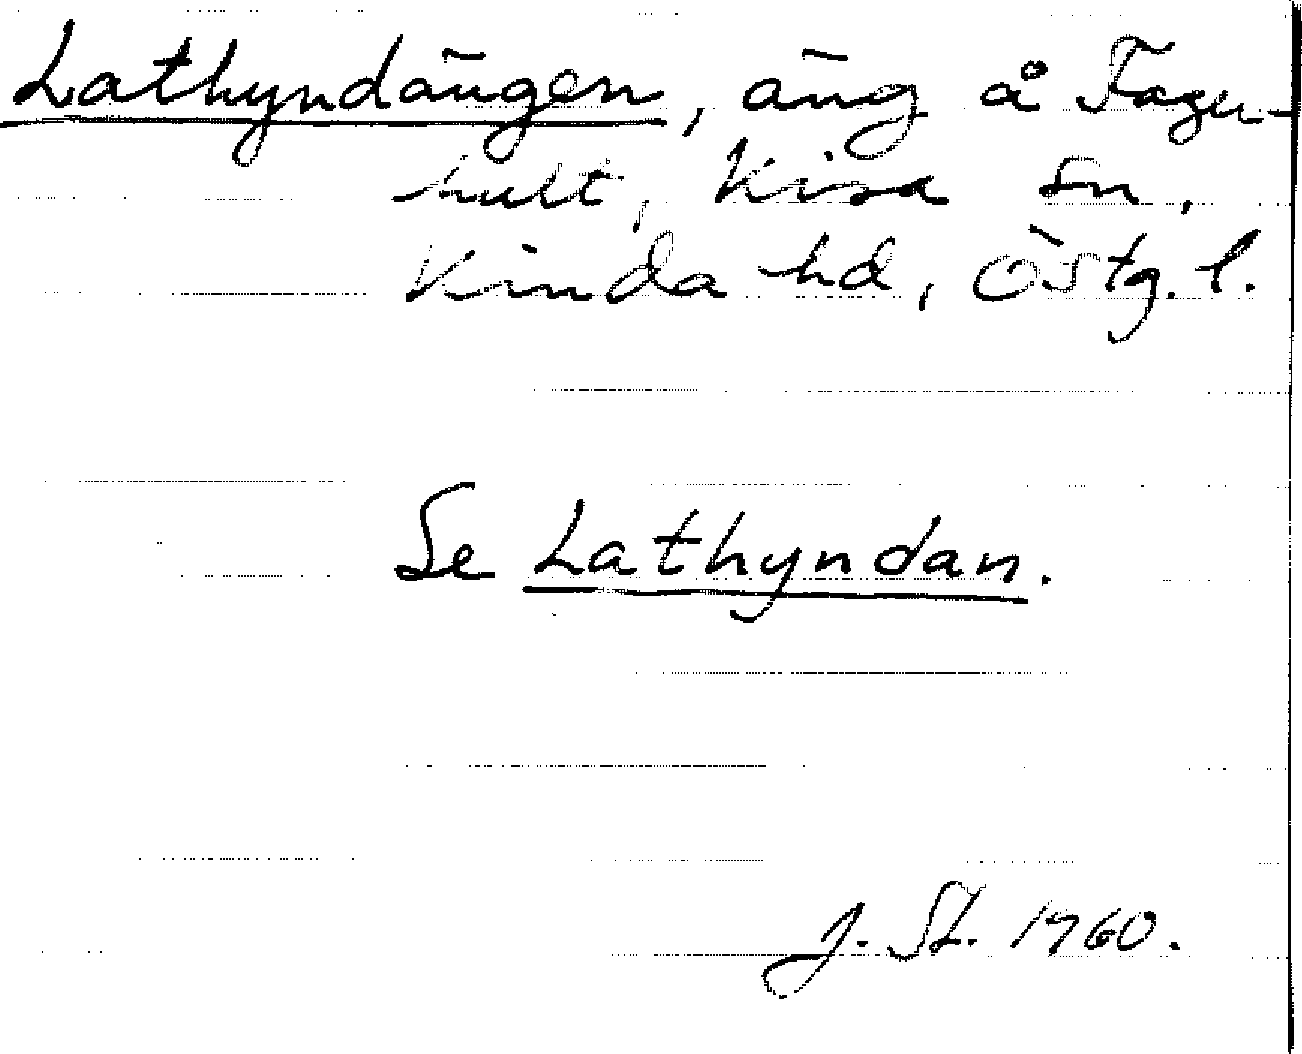 Lathyndängen, äng å Fager-
hult, Kisa sn,
Kinda hd, Östg. l.
Se Lathyndan.
J. St. 1960.